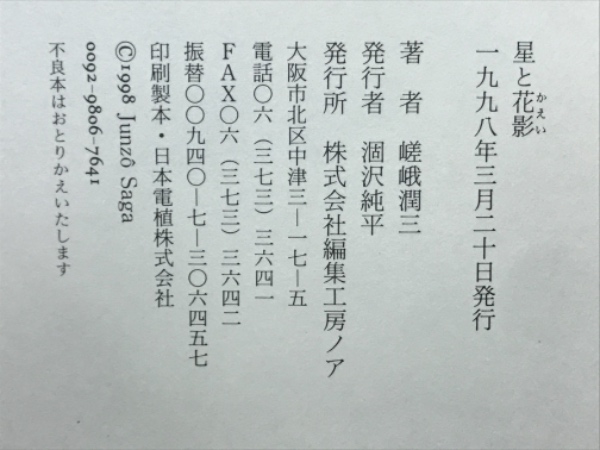 星と花影
かえい
一九九八年三月二十日発行
著者 嵯峨潤三
発行者 涸沢純平
発行所 株式会社編集工房ノア
大阪市北区中津三―一七―五
電話〇六(三七三)三六四一
FAX〇六(三七三)三六四二
振替〇〇九四〇―七―三〇六四五七
印刷製本・日本電植株式会社
©1998 Junzô Saga
0092-9806-7641
不良本はおとりかえいたします